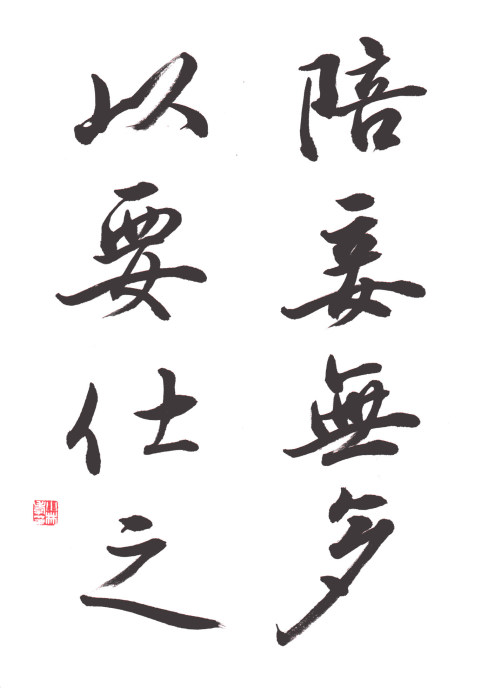 陪妾無多
以要仕之